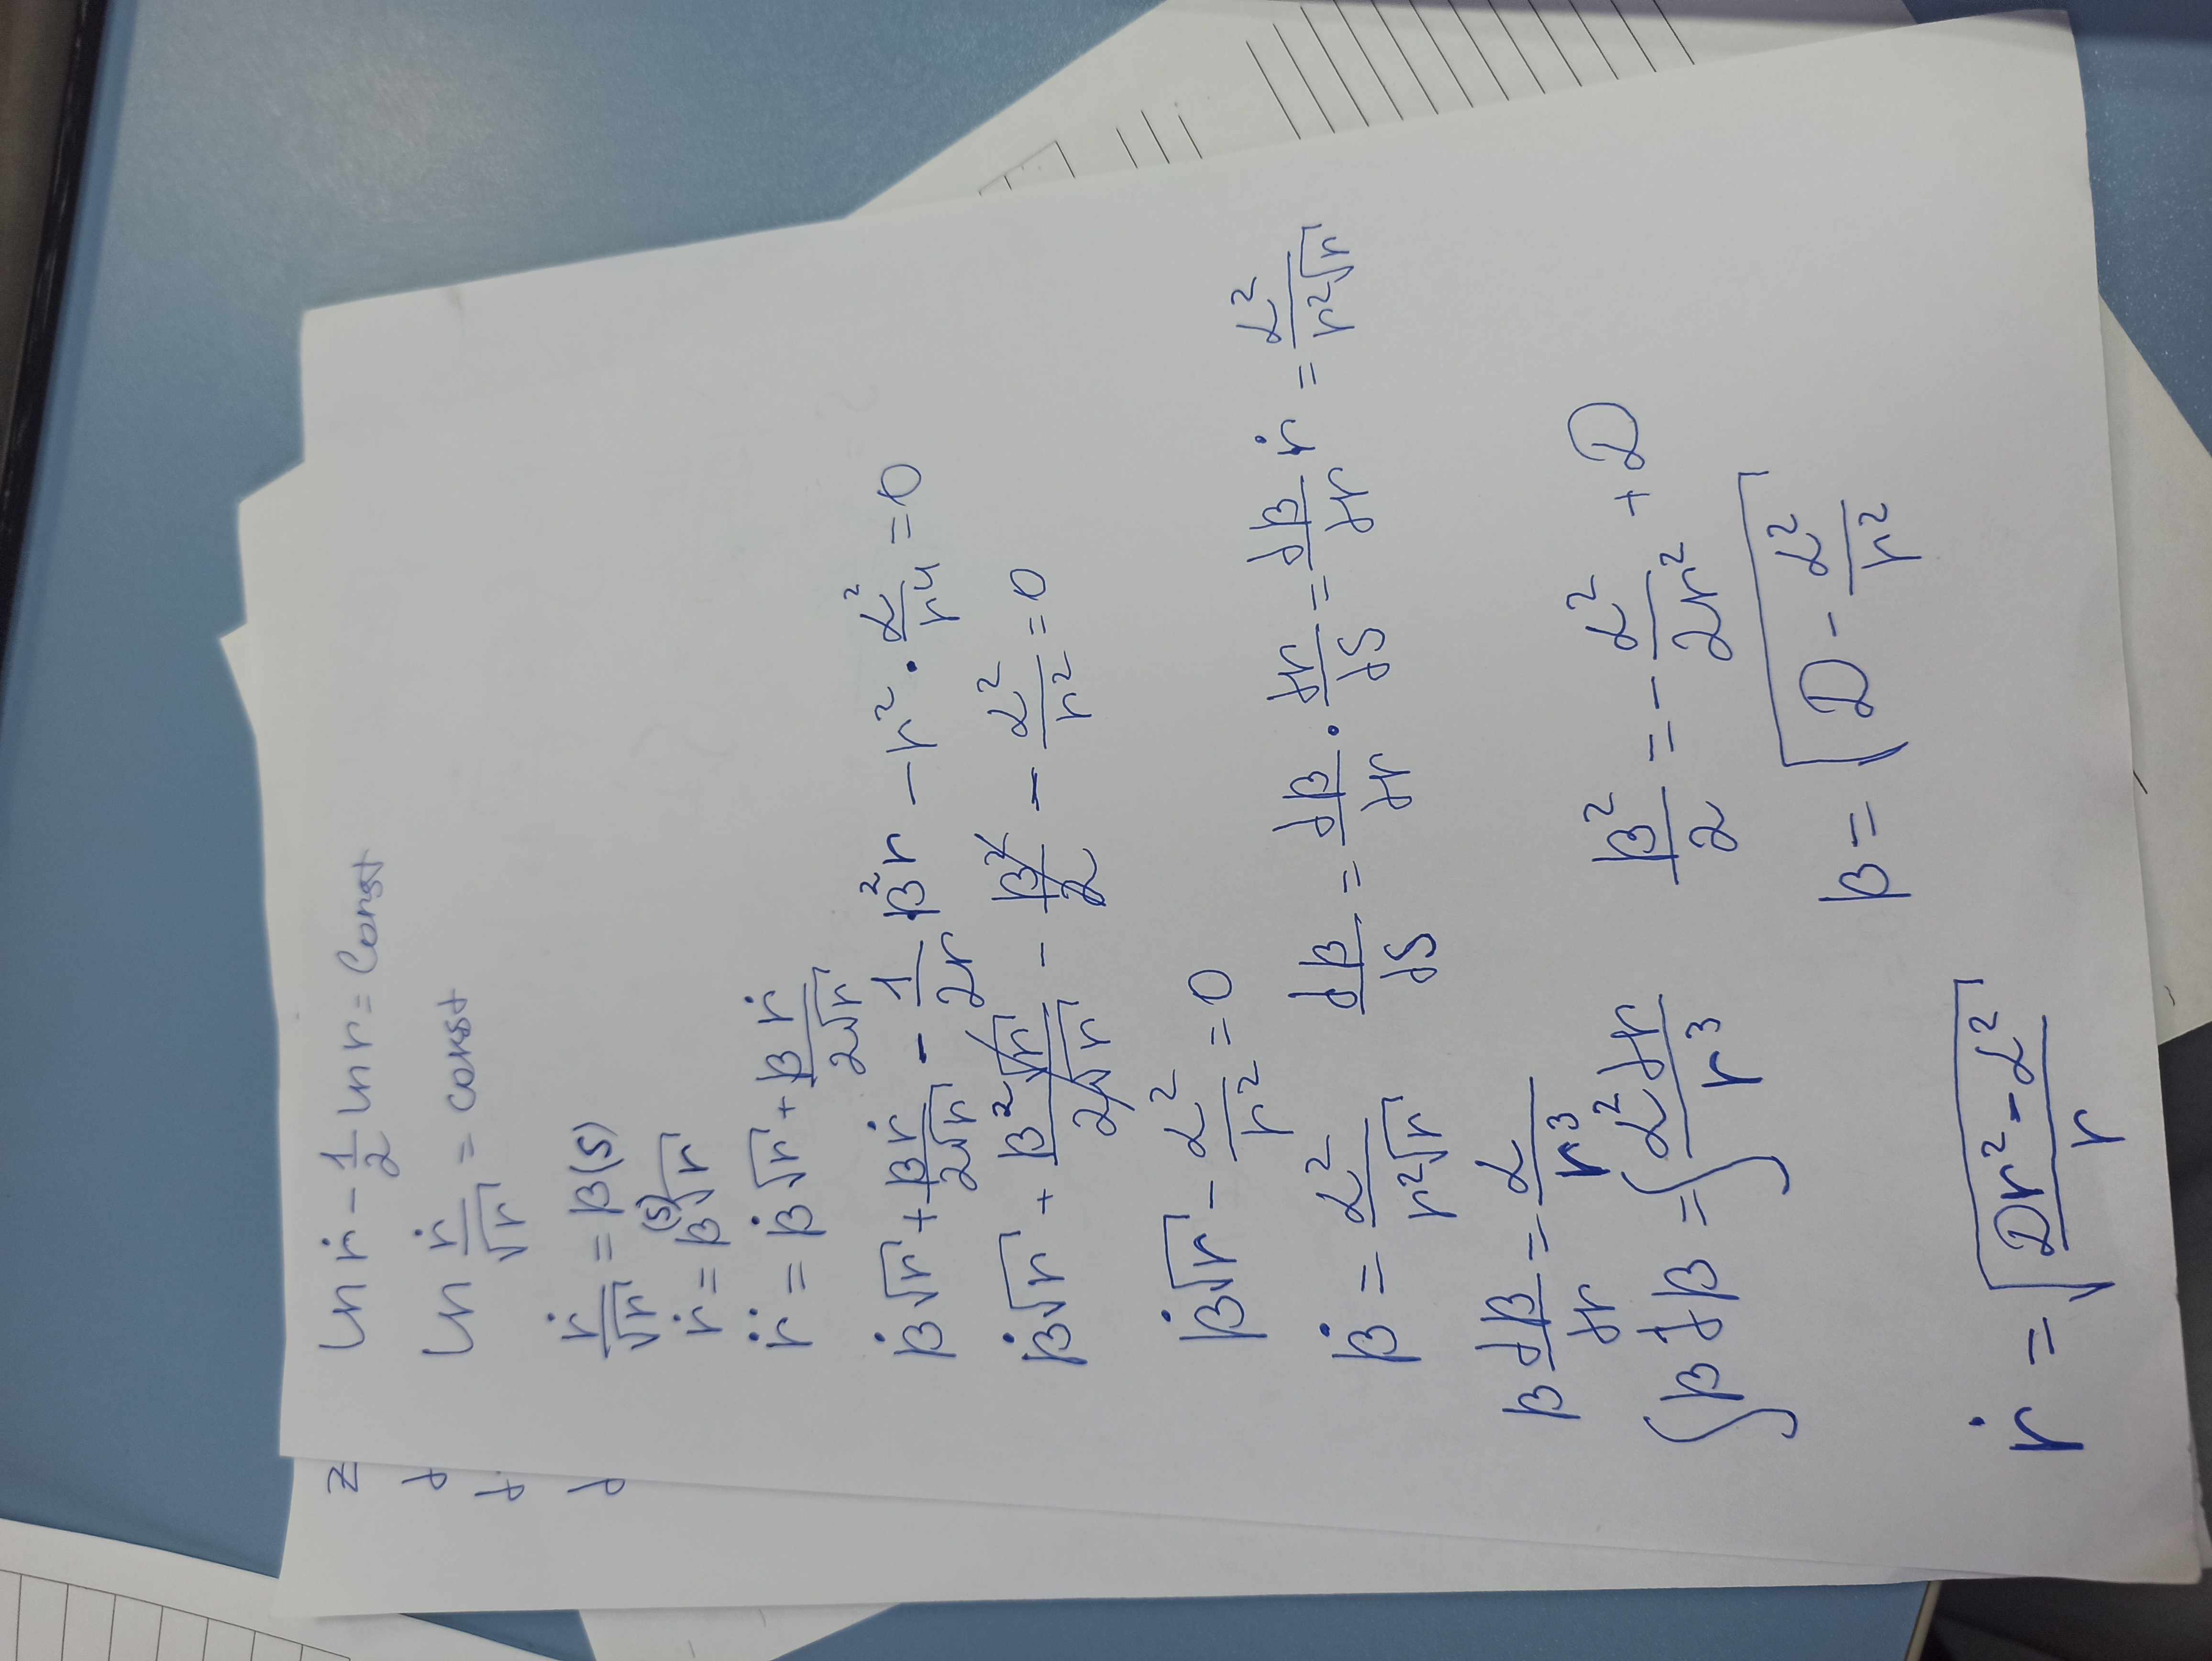 z
d
d
d
ln ṙ - 1/2 ln r = Const
ln ṙ/√r = const
ṙ/√r = β(s)
ṙ = β(s)√r
r̈ = β̇√r + βṙ/2√r
β̇√r + βṙ/2√r - 1/2r β²r - r² · α²/r⁴ = 0
β̇√r + β²√r/2√r - β²/2 - α²/r² = 0
β̇√r - α²/r² = 0
β̇ = α²/r²√r dβ/ds = dβ/dr · dr/ds = dβ/dr ṙ = α²/r²√r
β dβ/dr = α/r³
∫β dβ = ∫α² dr/r³ β²/2 = - α²/2r² + D
β = √(D - α²/r²)
ṙ = √(Dr² - α²/r)